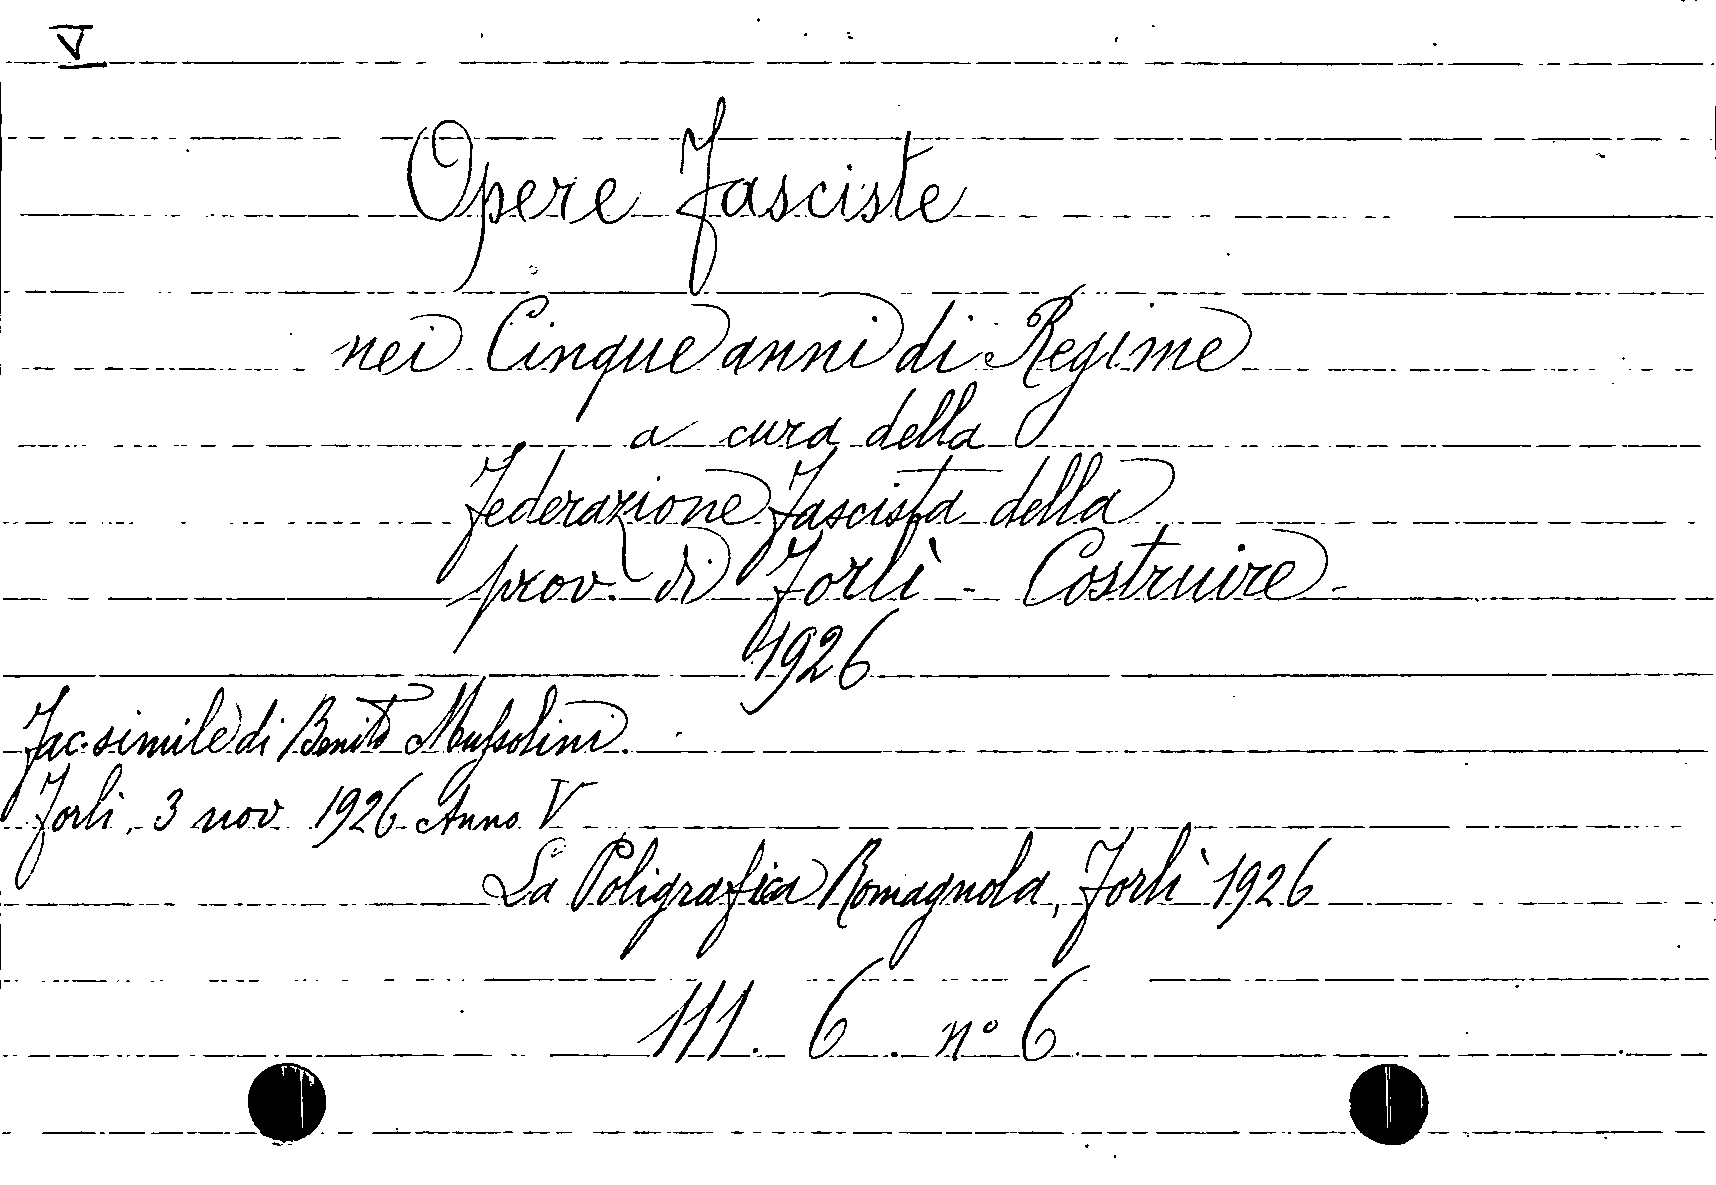 V
Opere Fasciste
nei Cinque anni di Regime
a cura della
Federazione Fascista della
prov. di Forlì - Costruire -
1926
Fac-simile di Benito Mussolini.
Forlì, 3 nov 1926 Anno V
La Poligrafica Romagnola, Forlì 1926
111. 6. n° 6